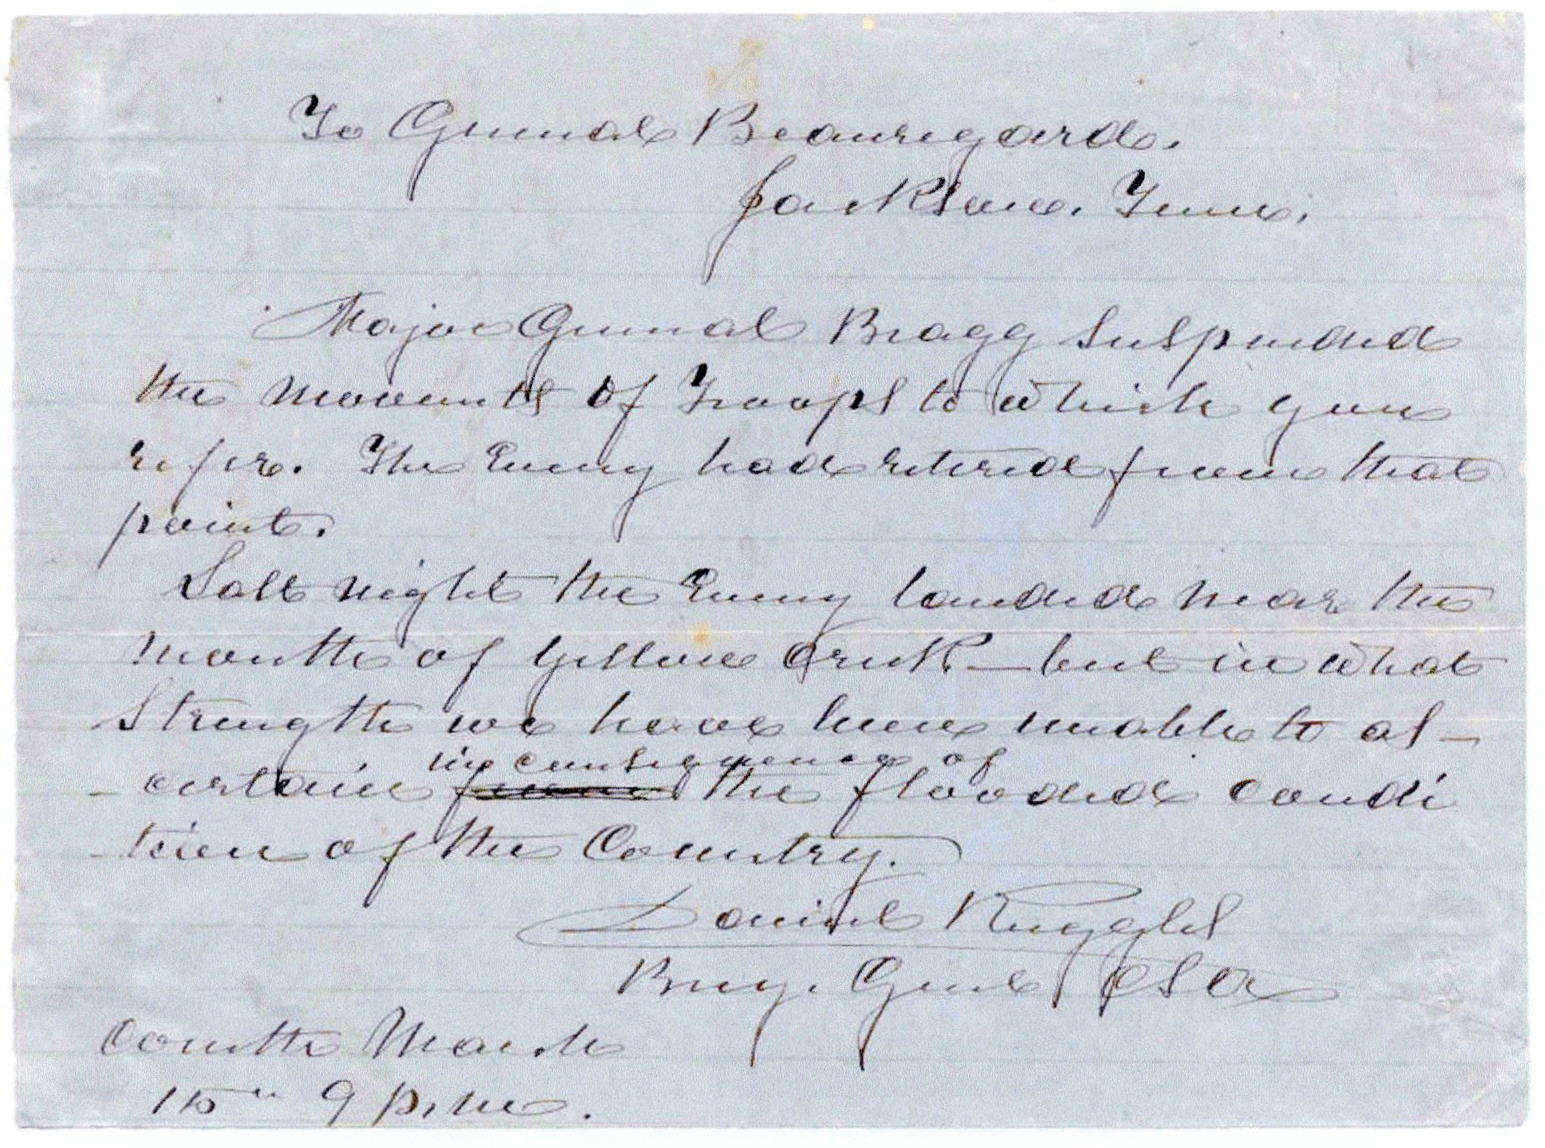 To General Beauregard.
Jackson. Tenn.
Major General Bragg suspended
the movements of Troops to which you
refer. The Enemy had retired from that
point.
Last night the Enemy landed near the
mouth of Yellow Creek — but in what
strength we have been unable to as-
-certain in consequence of the flooded condi
-tion of the Country.
Daniel Ruggles
Brig. Genl CSA
Corinth March
15" 9 p.m.